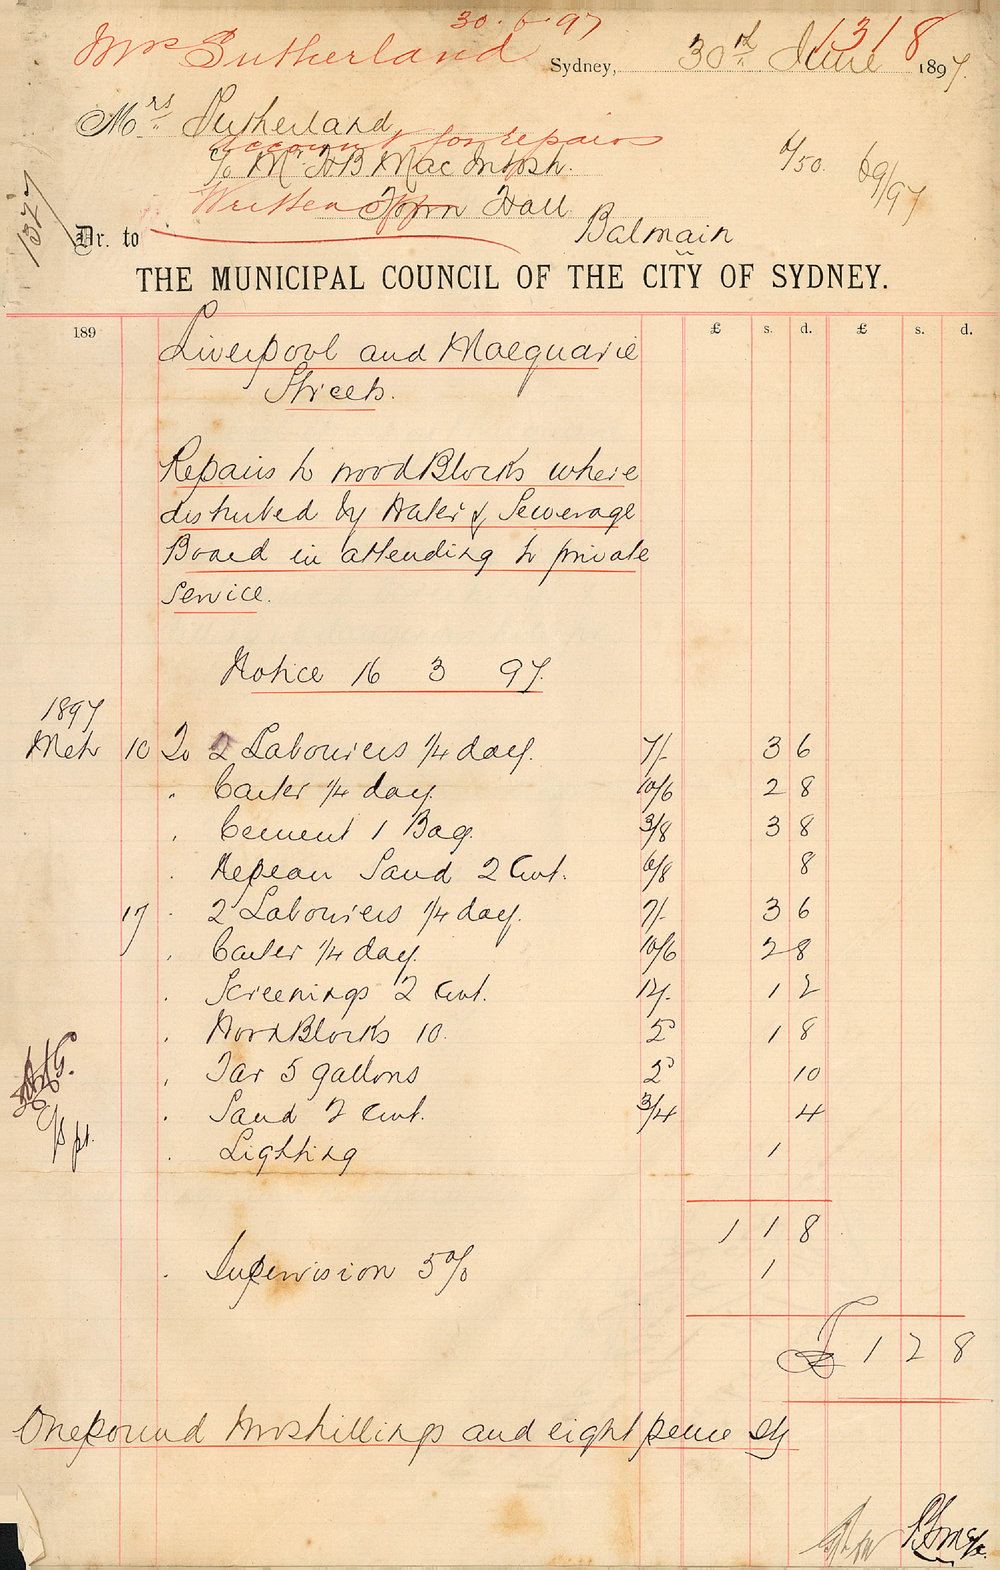 30.6.97
Mrs Sutherland
1318
Sydney, 30th June 1897.
Mrs Sutherland,
account for repairs
c/o Mr. H B MacIntosh.
/50. 69/97
Written off
Town Hall
Balmain
1327
Dr. to
THE MUNICIPAL COUNCIL OF THE CITY OF SYDNEY.
189 £ s. d. £ s. d.
Liverpool and Macquarie
Streets.
Repairs to wood Blocks where
disturbed by Water & Sewerage
Board in attending to private
service.
Notice 16 3 97.
1897
Mch 10 To 2 Labourers 1/4 day. 7/- 3 6
" Carter 1/4 day 10/6 2 8
" Cement 1 Bag. 3/8 3 8
" Nepean Sand 2 Cwt. 6/8 8
17 " 2 Labourers 1/4 day. 7/- 3 6
" Carter 1/4 day. 10/6 2 8
" Screenings 2 Cwt. 12/- 1 2
" Wood Blocks 10. 2 1 8
" Tar 5 gallons 2 10
" Sand 2 Cwt. 3/4 4
" Lighting 1
1 1 8
" Supervision 5% 1
£ 1 2 8
One pound two shillings and eight pence